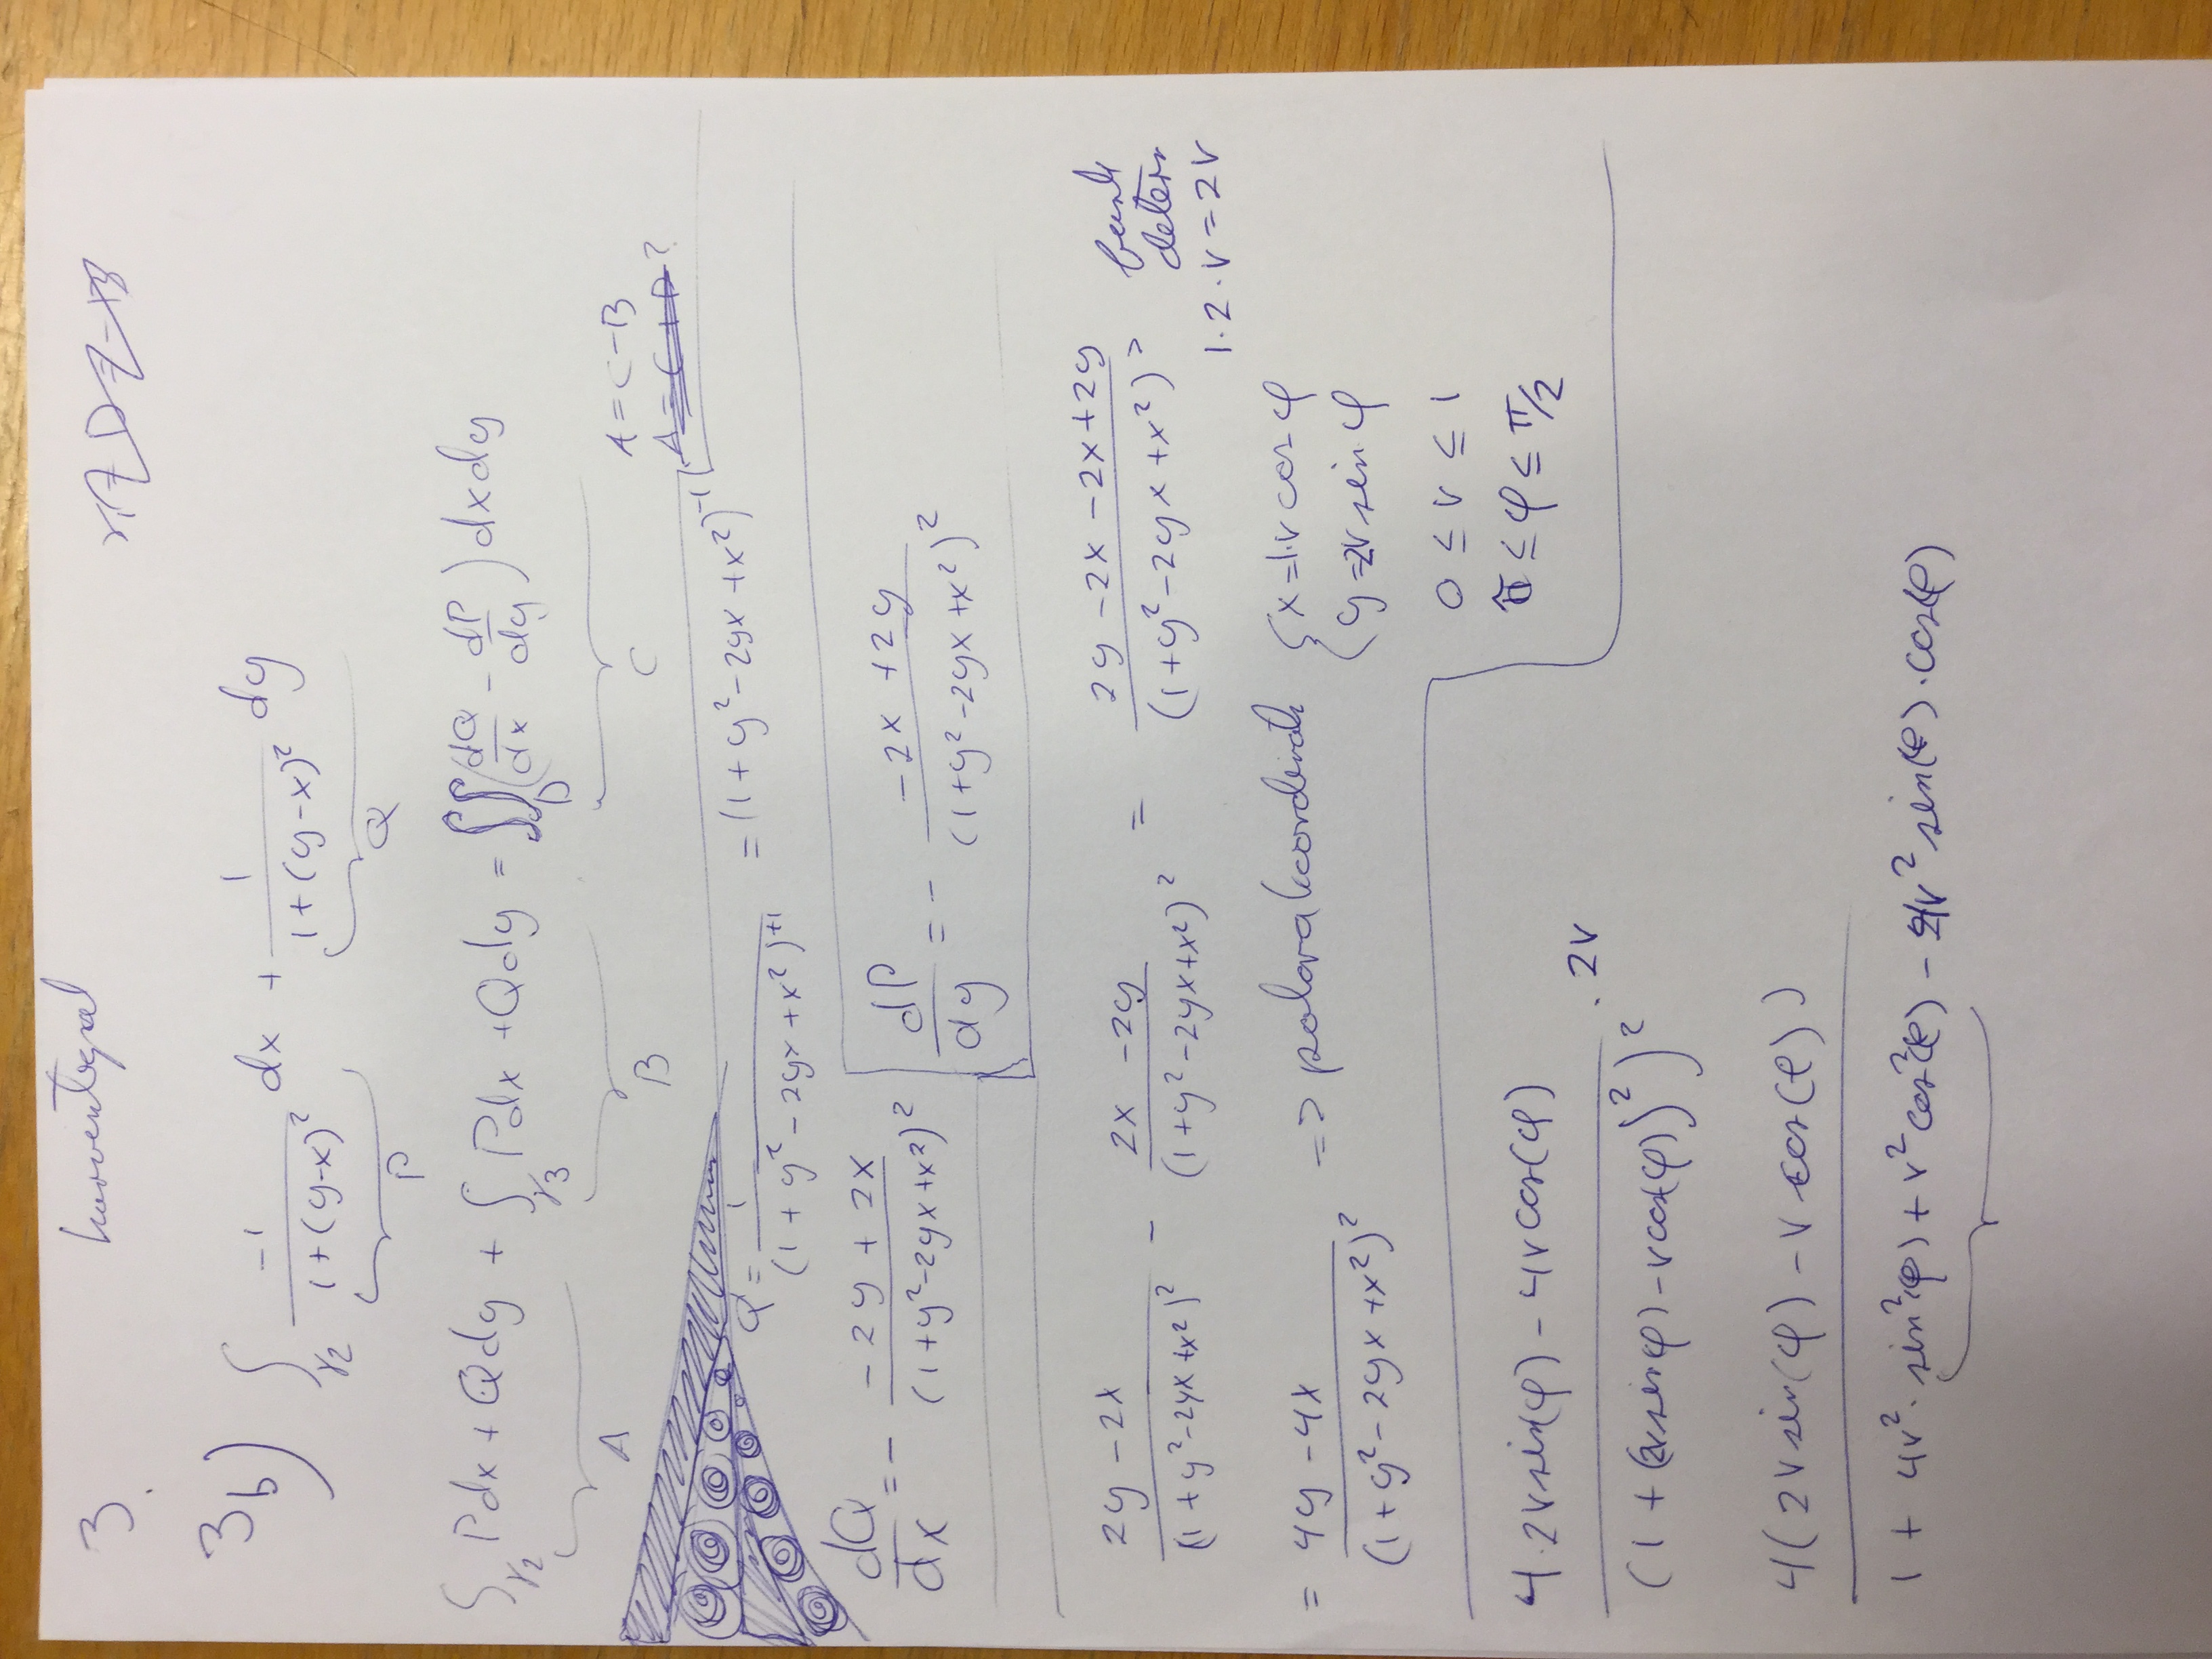 3.
3b) ∫γ2 -1/(1+(y-x)²) dx + 1/(1+(y-x)²) dy
P Q
∫γ2 Pdx + Qdy + ∫γ3 Pdx + Qdy = ∬D (dQ/dx - dP/dy) dxdy
A B C
A = C-B
?
Q = 1/(1+y²-2yx+x²)⁺¹ = (1+y²-2yx+x²)⁻¹
dQ/dx = - (-2y+2x)/(1+y²-2yx+x²)² dP/dy = - (-2x+2y)/(1+y²-2yx+x²)²
(2y-2x)/(1+y²-2yx+x²)² - (2x-2y)/(1+y²-2yx+x²)² = (2y-2x-2x+2y)/(1+y²-2yx+x²)²
funk
determ
1·2·r=2r
= (4y-4x)/(1+y²-2yx+x²)² => polara koordinat {x=1·r cos φ
{y=2r sin φ
0 ≤ r ≤ 1
π ≤ φ ≤ π/2
(4·2r sin(φ) - 4r cos(φ))/(1+(2r sin(φ) - r cos(φ))²)² · 2r
4(2r sin(φ) - r cos(φ))
1 + 4r²·sin²(φ) + r² cos²(φ) - 4r² sin(φ)·cos(φ)